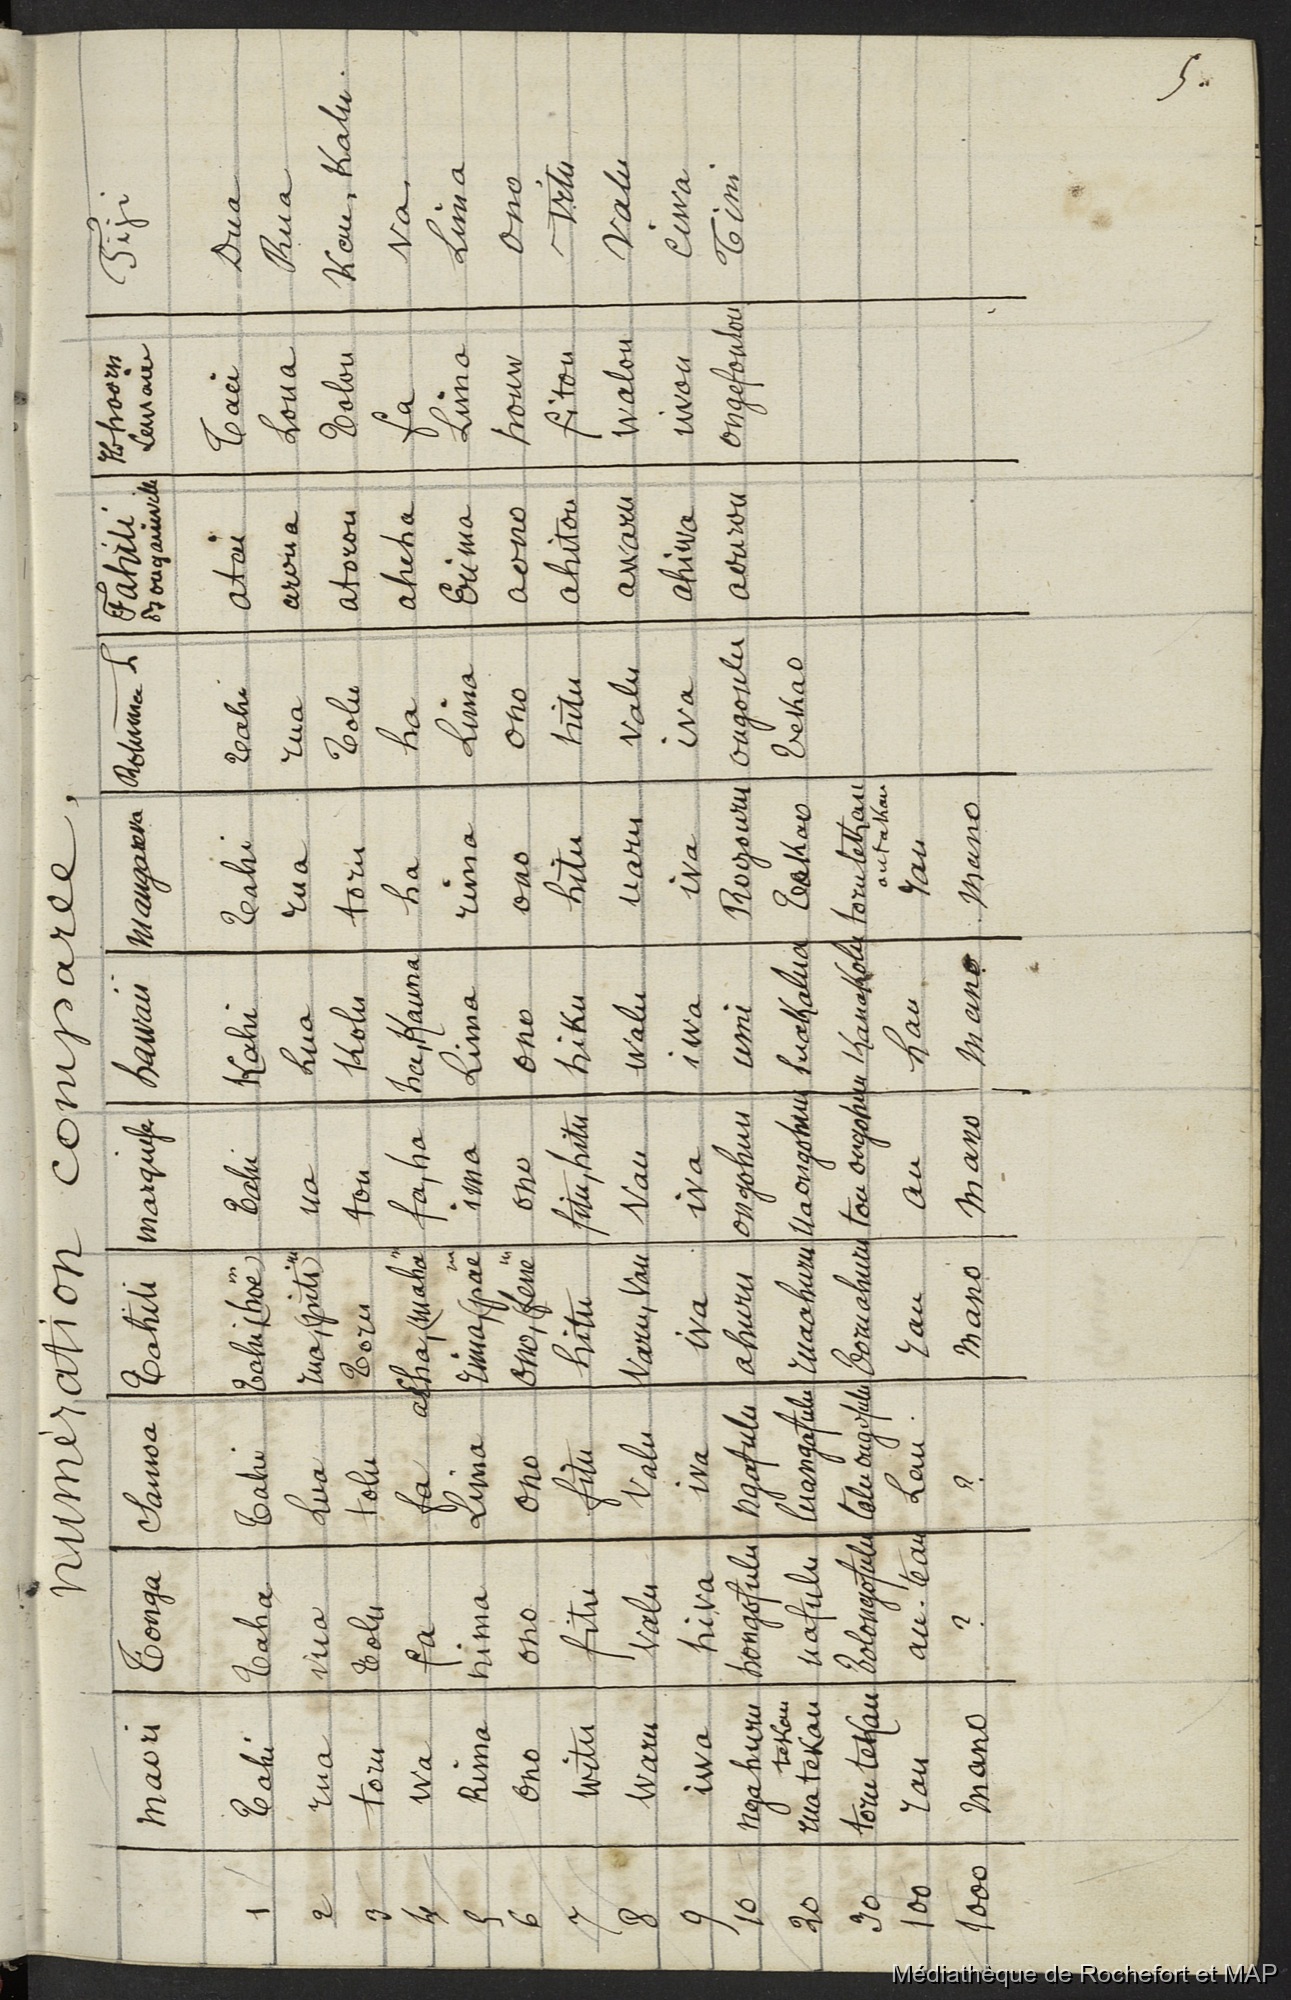 5.
numération comparée,
maori Tonga Samoa Tahiti marquise hawaii mangareva Rotuma Tahiti Bougainville Hoorn Lemaire Fiji
1 Tahi Taha Tahi Tahi, (hoe) m Tahi Kahi Tahi Tahi atai Taci Dua
2 rua rua Lua rua, (piti) m ua lua rua rua aroua Loua Rua
3 toru Tolu tolu Toru tou Kolu toru Tolu atorou Tolou Kau, Kalu.
4 wa fa fa aha, (maha) m fa, ha ha, Kauna ha ha aheha fa va,
5 Rima nima Lima rima, (pae) m ima Lima rima Lima Erima Lima Lima
6 ono ono ono ono, (fene) m ono ono ono ono aono houw ono
7 witu fitu fitu hitu fitu, hitu hiku hitu hitu ahitou fitou Vitu
8 Waru Valu Valu Varu, Vau Vau walu varu valu awaru walou Valu
9 iwa hiva iva iva iva iwa iva iva ahiwa iwou Ciwa
10 ngahuru hongofulu ngafulu ahuru ongohuu umi Rogouru ougoulu aourou ongefoulou Tini
20 rua tekau tekau uafulu luangafulu ruaahuru uaongohuu iuakalua Tekao Tekao
30 toru tekau Tolongofulu tolu ongofulu Toruahuru tou ongohuu Kanakolu toru tekau
outakau
100 rau au. teau Lau. rau au hau rau
1000 mano ? ? mano mano mano mano
Médiathèque de Rochefort et MAP